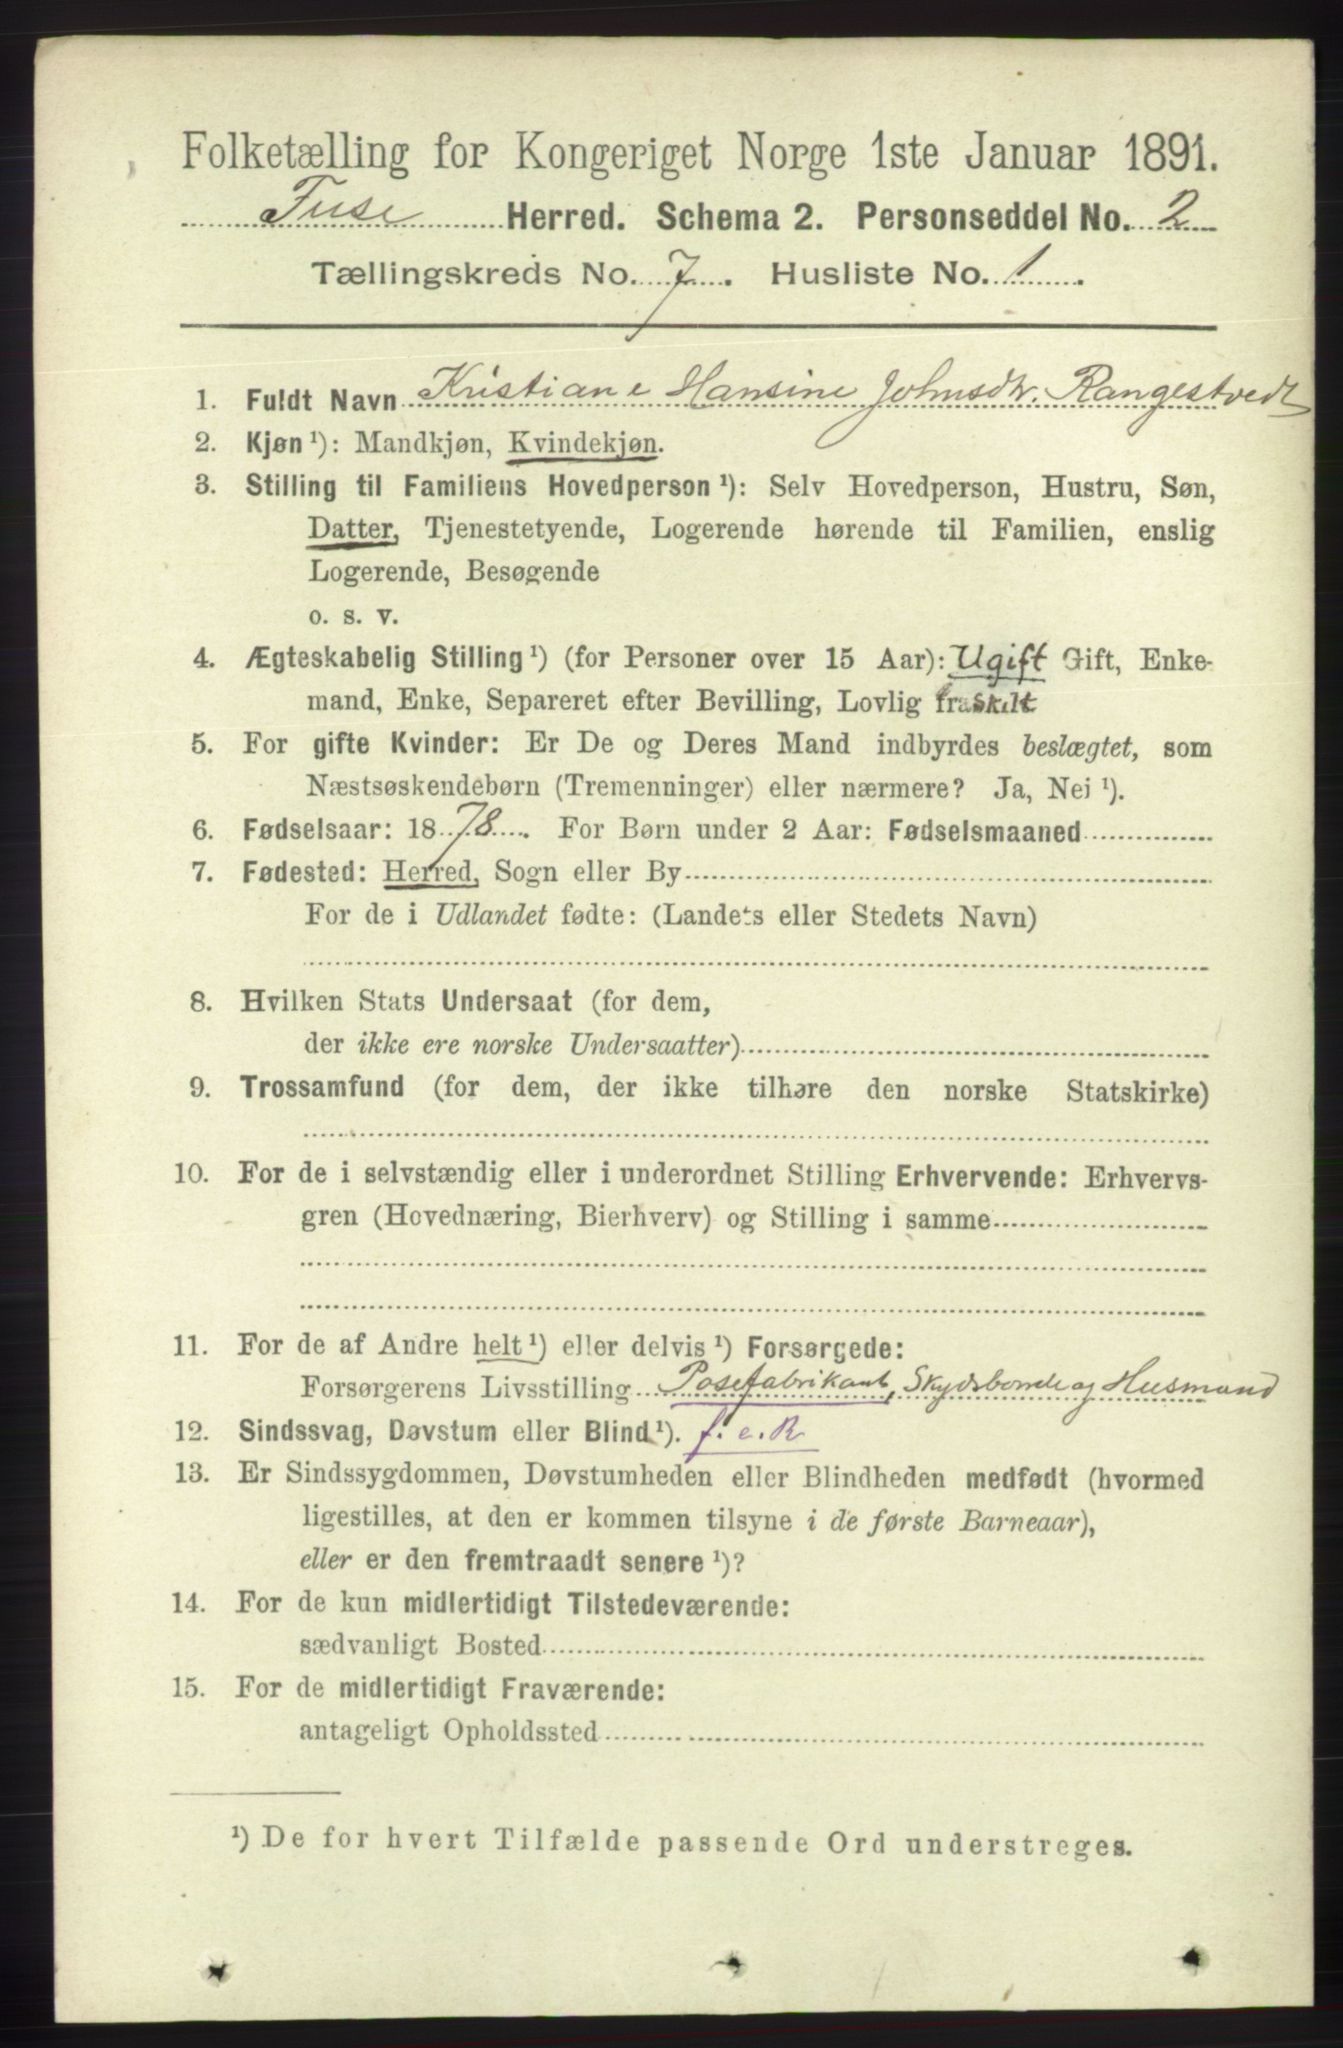 Folketælling for Kongeriget Norge 1ste Januar 1891.
Fuse Herred. Schema 2. Personseddel No. 2
Tællingskreds No. 7. Husliste No. 1.
1. Fuldt Navn Kristiane Hansine Johnsdtr. Rangestvedt
2. Kjøn¹): Mandkjøn, Kvindekjøn.
3. Stilling til Familiens Hovedperson¹): Selv Hovedperson, Hustru, Søn,
Datter, Tjenestetyende, Logerende hørende til Familien, enslig
Logerende, Besøgende
o. s. v.
4. Ægteskabelig Stilling¹) (for Personer over 15 Aar): Ugift Gift, Enke-
mand, Enke, Separeret efter Bevilling, Lovlig fraskilt
5. For gifte Kvinder: Er De og Deres Mand indbyrdes beslægtet, som
Næstsøskendebørn (Tremenninger) eller nærmere? Ja, Nei¹).
6. Fødselsaar: 1878. For Børn under 2 Aar: Fødselsmaaned
7. Fødested: Herred, Sogn eller By
For de i Udlandet fødte: (Landets eller Stedets Navn)
8. Hvilken Stats Undersaat (for dem,
der ikke ere norske Undersaatter)
9. Trossamfund (for dem, der ikke tilhøre den norske Statskirke)
10. For de i selvstændig eller i underordnet Stilling Erhvervende: Erhvervs-
gren (Hovednæring, Bierhverv) og Stilling i samme
11. For de af Andre helt¹) eller delvis¹) Forsørgede:
Forsørgerens Livsstilling Posefabrikant, Skydsbonde og Husmand
12. Sindssvag, Døvstum eller Blind¹). f. e. R
13. Er Sindssygdommen, Døvstumheden eller Blindheden medfødt (hvormed
ligestilles, at den er kommen tilsyne i de første Barneaar),
eller er den fremtraadt senere¹)?
14. For de kun midlertidigt Tilstedeværende:
sædvanligt Bosted
15. For de midlertidigt Fraværende:
antageligt Opholdssted
¹) De for hvert Tilfælde passende Ord understreges.